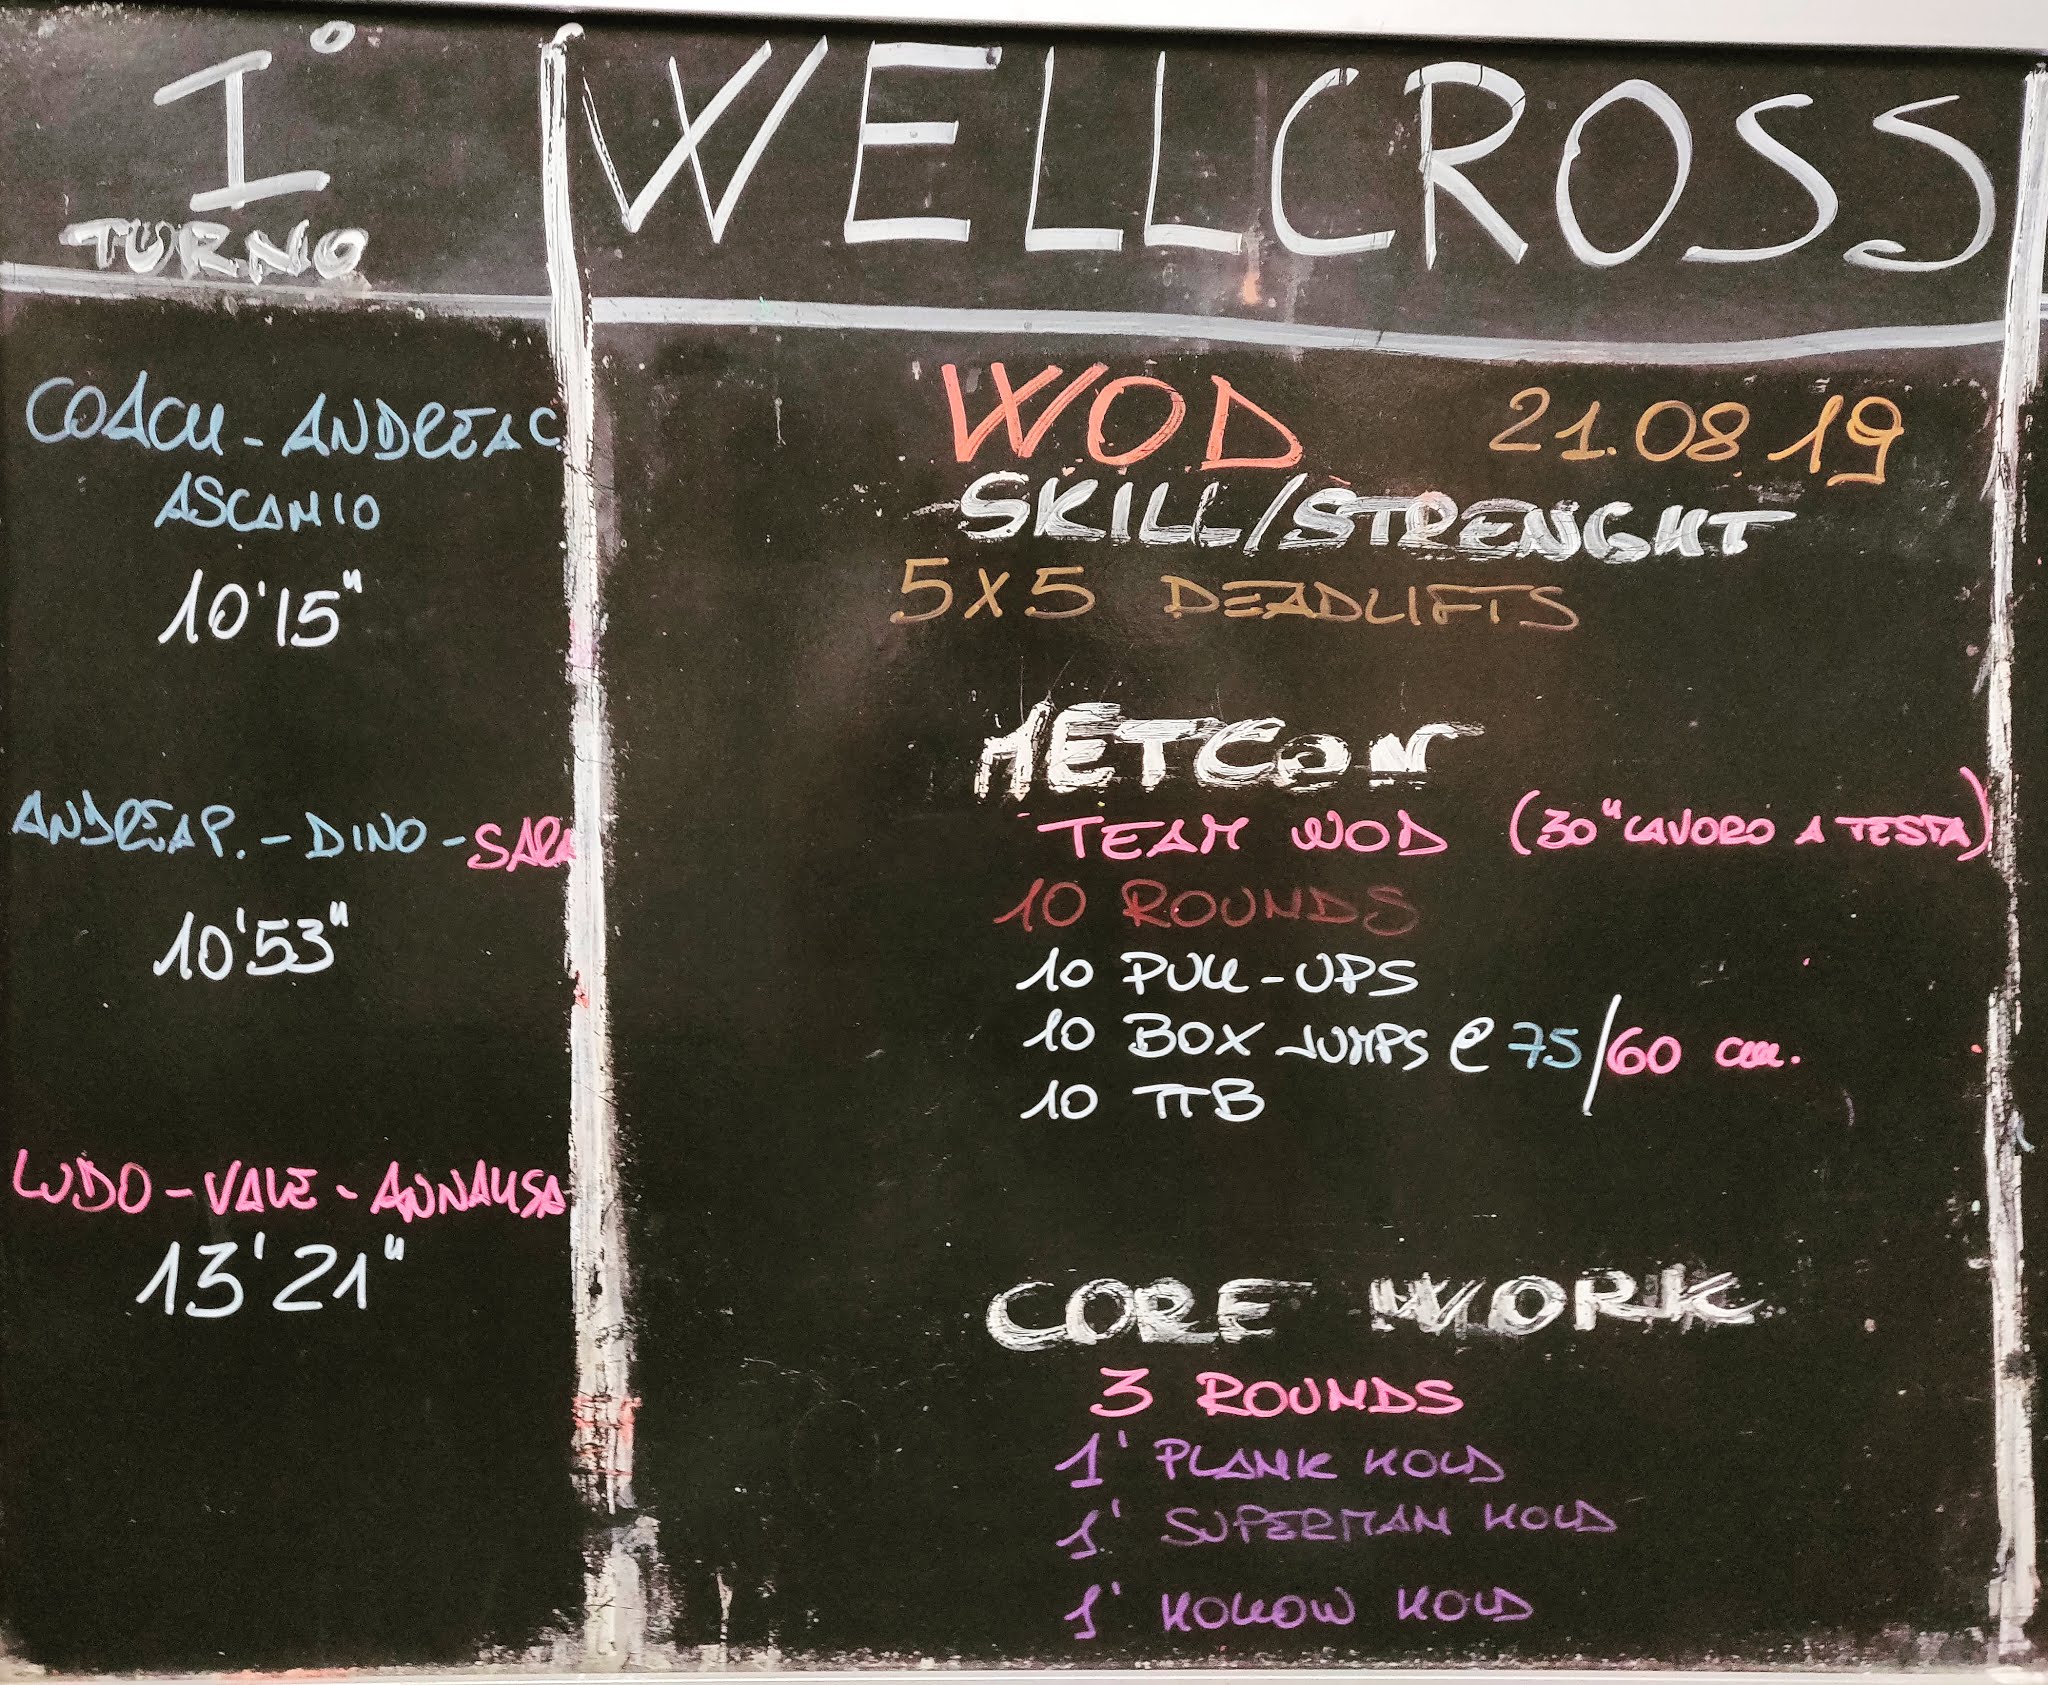 1°
TURNO
COACH - ANDREA C.
ASCANIO
10'15"
ANDREA P. - DINO - SARA
10'53"
LUDO - VALE - ANNALISA
13'21"
WELLCROSS
WOD 21.08 19
SKILL/STRENGHT
5X5 DEADLIFTS
METCON
TEAM WOD (30" LAVORO A TESTA)
10 ROUNDS
10 PULL-UPS
10 BOX JUMPS @ 75/60 cm.
10 TTB
CORE WORK
3 ROUNDS
1' PLANK HOLD
1' SUPERMAN HOLD
1' HOLLOW HOLD